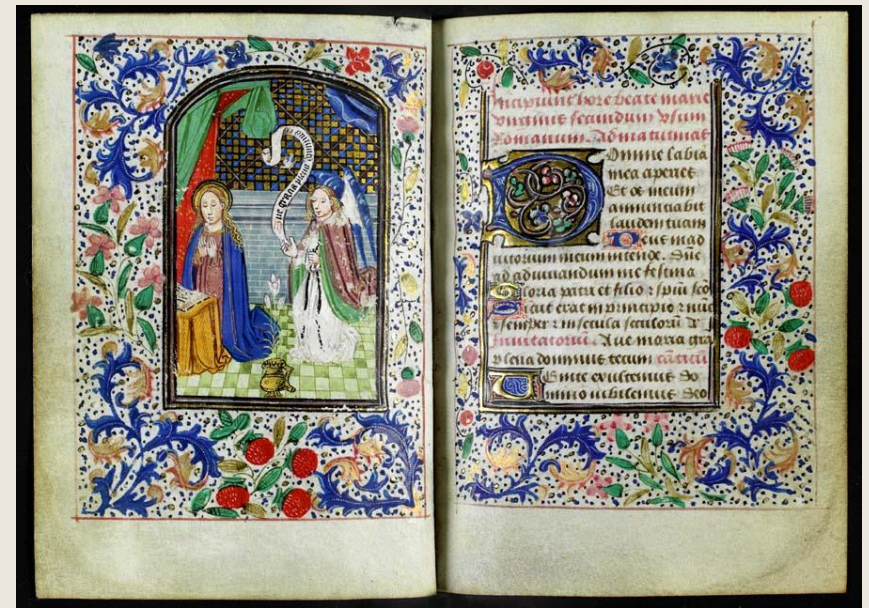 ave gracia plena dominus
Incipiunt hore beate marie
virginis secundum vsum
Romanum. Ad matutinas
Domine labia
mea aperies
Et os meum
annunciabit
laudem tuam
Deus in ad
iutorium meum intende. Dne
ad adiuuandum me festina
Gloria patri et filio z spiritu sco
Sicut erat in principio z nūc
z semper z in secula seculorū A
Inuitatoriū. Aue maria gra
plena dominus tecum
Uenite exultemus Do
mino iubilemus Deo